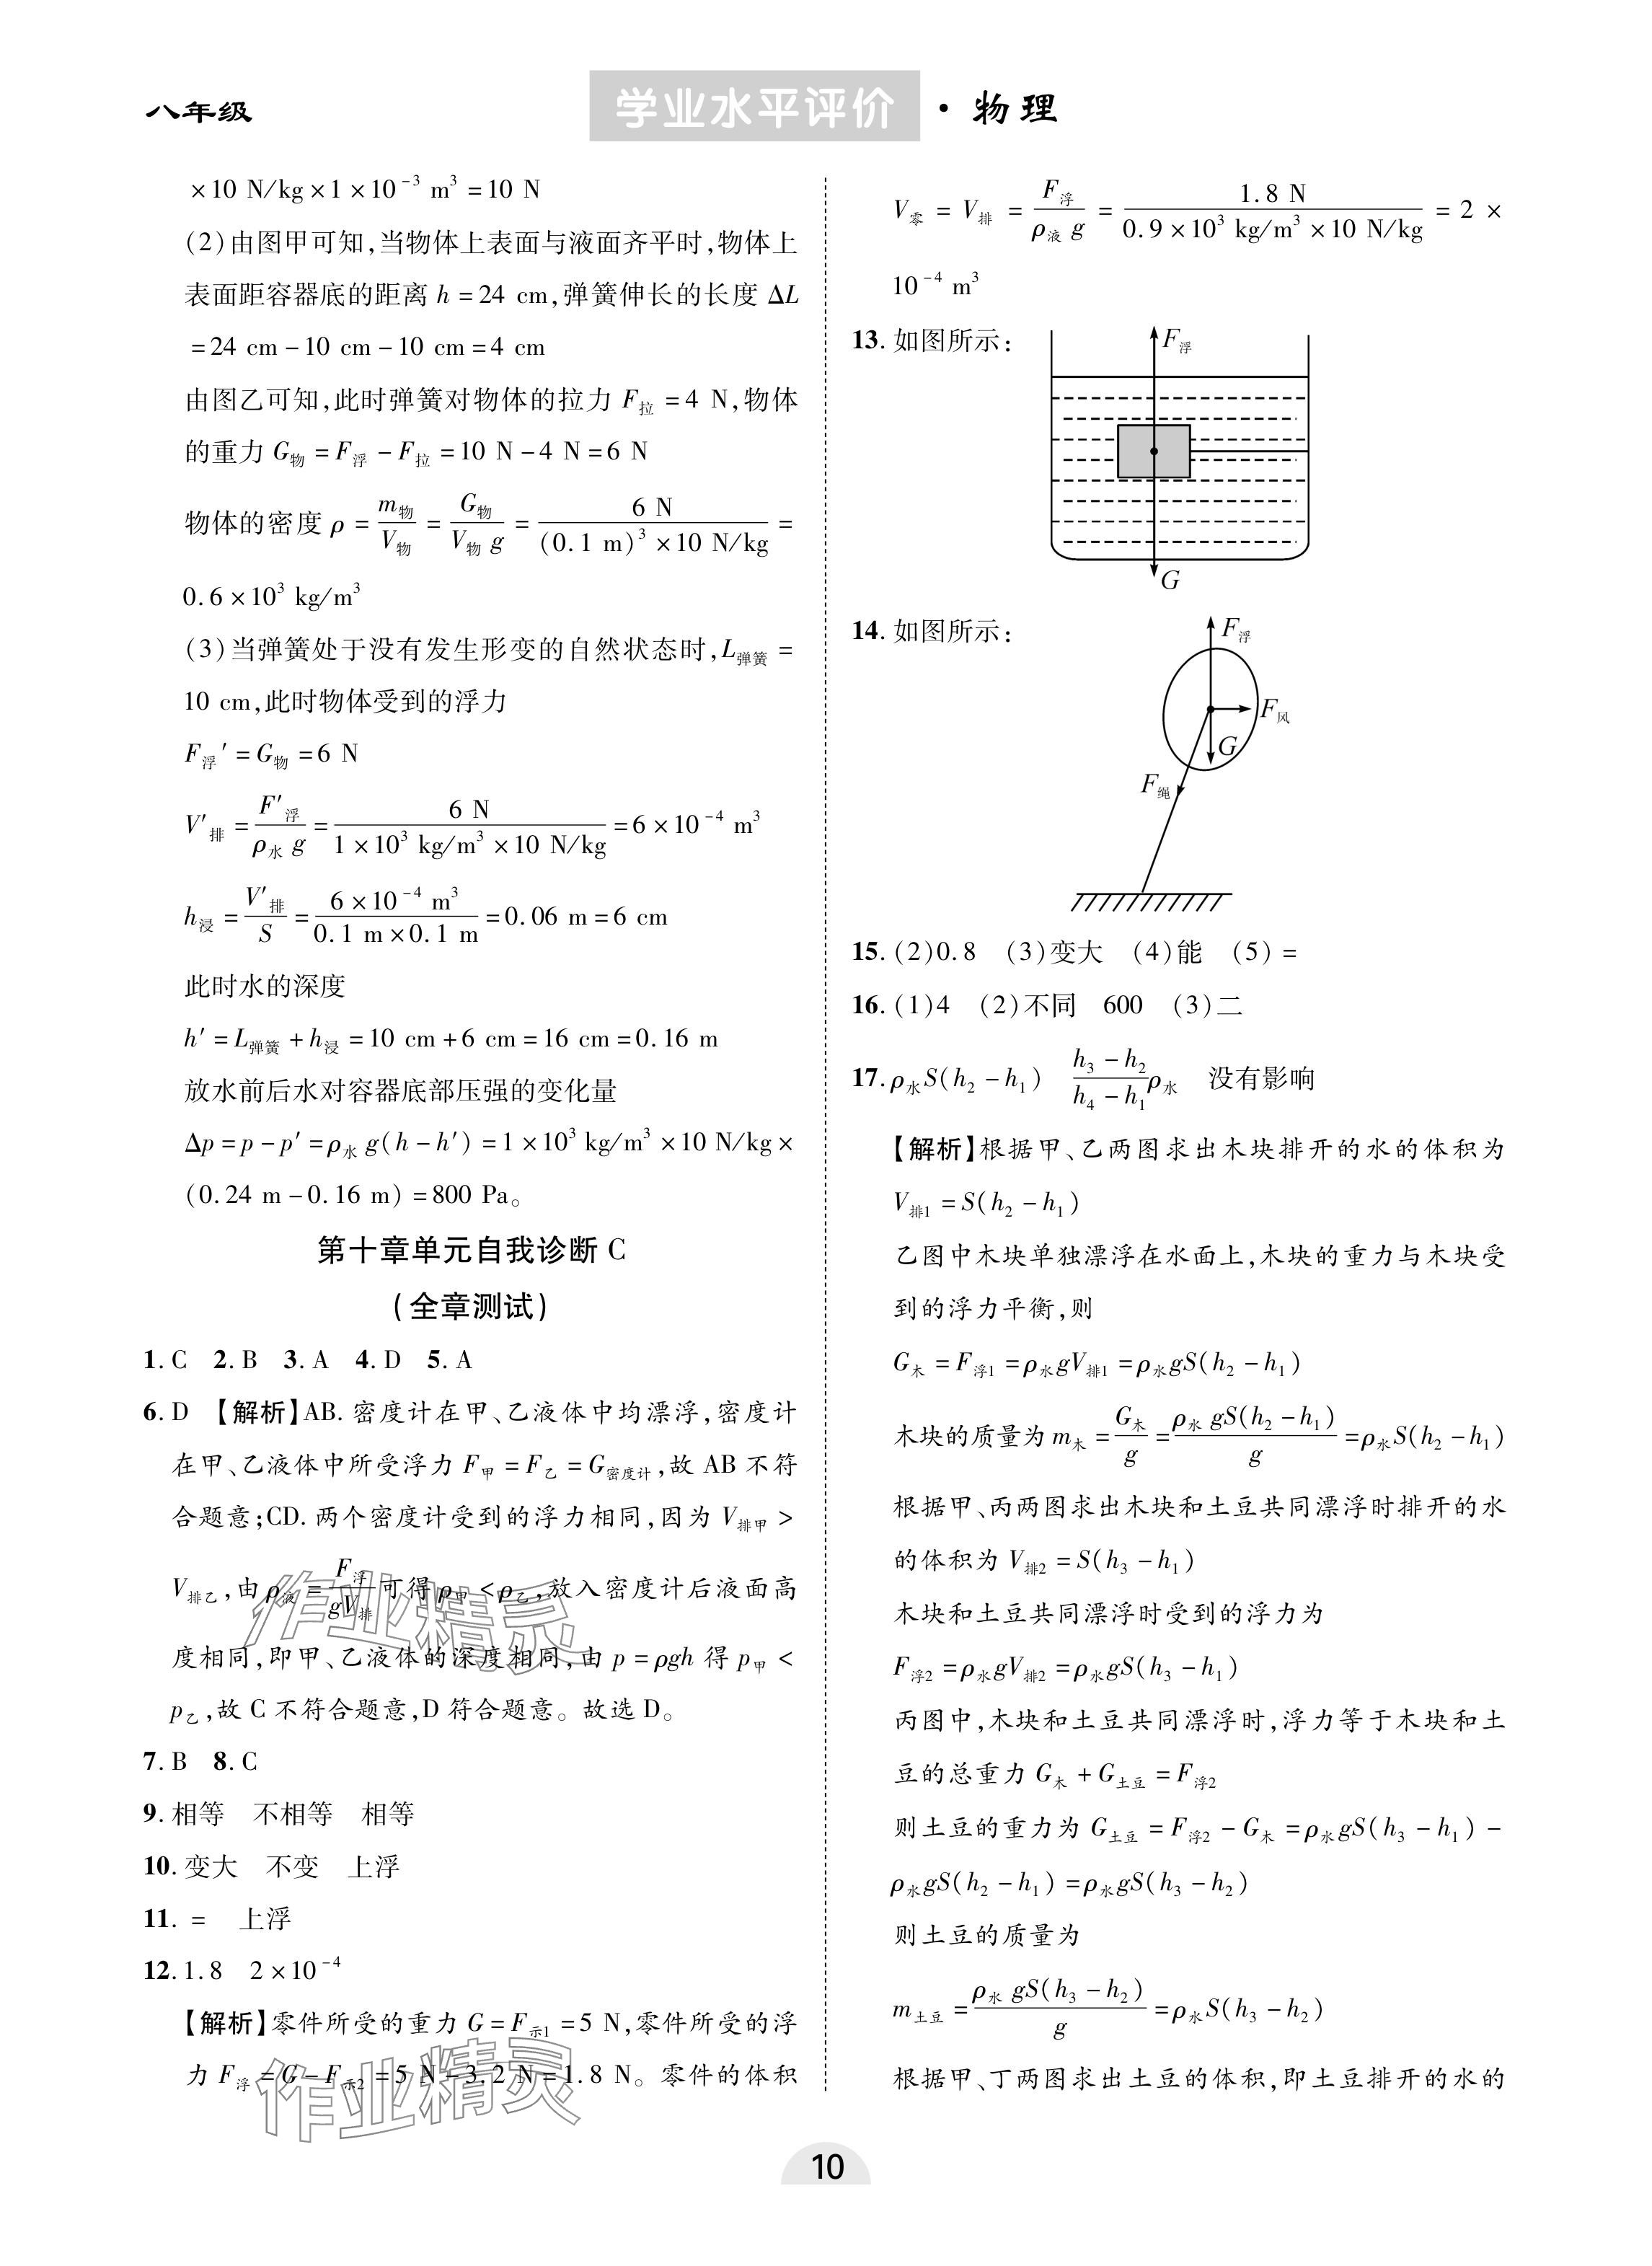 八年级
学业水平评价·物理
×10 N/kg×1×10⁻³ m³=10 N
(2)由图甲可知,当物体上表面与液面齐平时,物体上
表面距容器底的距离 h=24 cm,弹簧伸长的长度 ΔL
=24 cm-10 cm-10 cm=4 cm
由图乙可知,此时弹簧对物体的拉力 F拉=4 N,物体
的重力 G物=F浮-F拉=10 N-4 N=6 N
物体的密度 ρ=m物/V物=G物/(V物 g)=6 N/((0.1 m)³×10 N/kg)=
0.6×10³ kg/m³
(3)当弹簧处于没有发生形变的自然状态时,L弹簧=
10 cm,此时物体受到的浮力
F浮′=G物=6 N
V′排=F′浮/(ρ水 g)=6 N/(1×10³ kg/m³×10 N/kg)=6×10⁻⁴ m³
h浸=V′排/S=6×10⁻⁴ m³/(0.1 m×0.1 m)=0.06 m=6 cm
此时水的深度
h′=L弹簧+h浸=10 cm+6 cm=16 cm=0.16 m
放水前后水对容器底部压强的变化量
Δp=p-p′=ρ水 g(h-h′)=1×10³ kg/m³×10 N/kg×
(0.24 m-0.16 m)=800 Pa。
第十章单元自我诊断 C
(全章测试)
1. C 2. B 3. A 4. D 5. A
6. D 【解析】AB. 密度计在甲、乙液体中均漂浮,密度计
在甲、乙液体中所受浮力 F甲=F乙=G密度计,故 AB 不符
合题意;CD. 两个密度计受到的浮力相同,因为 V排甲>
V排乙,由ρ液=F浮/(gV排)可得ρ甲<ρ乙,放入密度计后液面高
度相同,即甲、乙液体的深度相同,由 p=ρgh 得 p甲<
p乙,故 C 不符合题意,D 符合题意。故选 D。
7. B 8. C
9. 相等 不相等 相等
10. 变大 不变 上浮
11. = 上浮
12. 1.8 2×10⁻⁴
【解析】零件所受的重力 G=F示1=5 N,零件所受的浮
力 F浮=G-F示2=5 N-3.2 N=1.8 N。零件的体积
V零=V排=F浮/(ρ液 g)=1.8 N/(0.9×10³ kg/m³×10 N/kg)=2×
10⁻⁴ m³
13. 如图所示:
F浮
G
14. 如图所示:
F浮
F风
G
F绳
15. (2)0.8 (3)变大 (4)能 (5)=
16. (1)4 (2)不同 600 (3)二
17. ρ水S(h₂-h₁) (h₃-h₂)/(h₄-h₁)ρ水 没有影响
【解析】根据甲、乙两图求出木块排开的水的体积为
V排1=S(h₂-h₁)
乙图中木块单独漂浮在水面上,木块的重力与木块受
到的浮力平衡,则
G木=F浮1=ρ水gV排1=ρ水gS(h₂-h₁)
木块的质量为 m木=G木/g=ρ水 gS(h₂-h₁)/g=ρ水S(h₂-h₁)
根据甲、丙两图求出木块和土豆共同漂浮时排开的水
的体积为 V排2=S(h₃-h₁)
木块和土豆共同漂浮时受到的浮力为
F浮2=ρ水gV排2=ρ水gS(h₃-h₁)
丙图中,木块和土豆共同漂浮时,浮力等于木块和土
豆的总重力 G木+G土豆=F浮2
则土豆的重力为 G土豆=F浮2-G木=ρ水gS(h₃-h₁)-
ρ水gS(h₂-h₁)=ρ水gS(h₃-h₂)
则土豆的质量为
m土豆=ρ水 gS(h₃-h₂)/g=ρ水S(h₃-h₂)
根据甲、丁两图求出土豆的体积,即土豆排开的水的
作业精灵
作业精灵
10